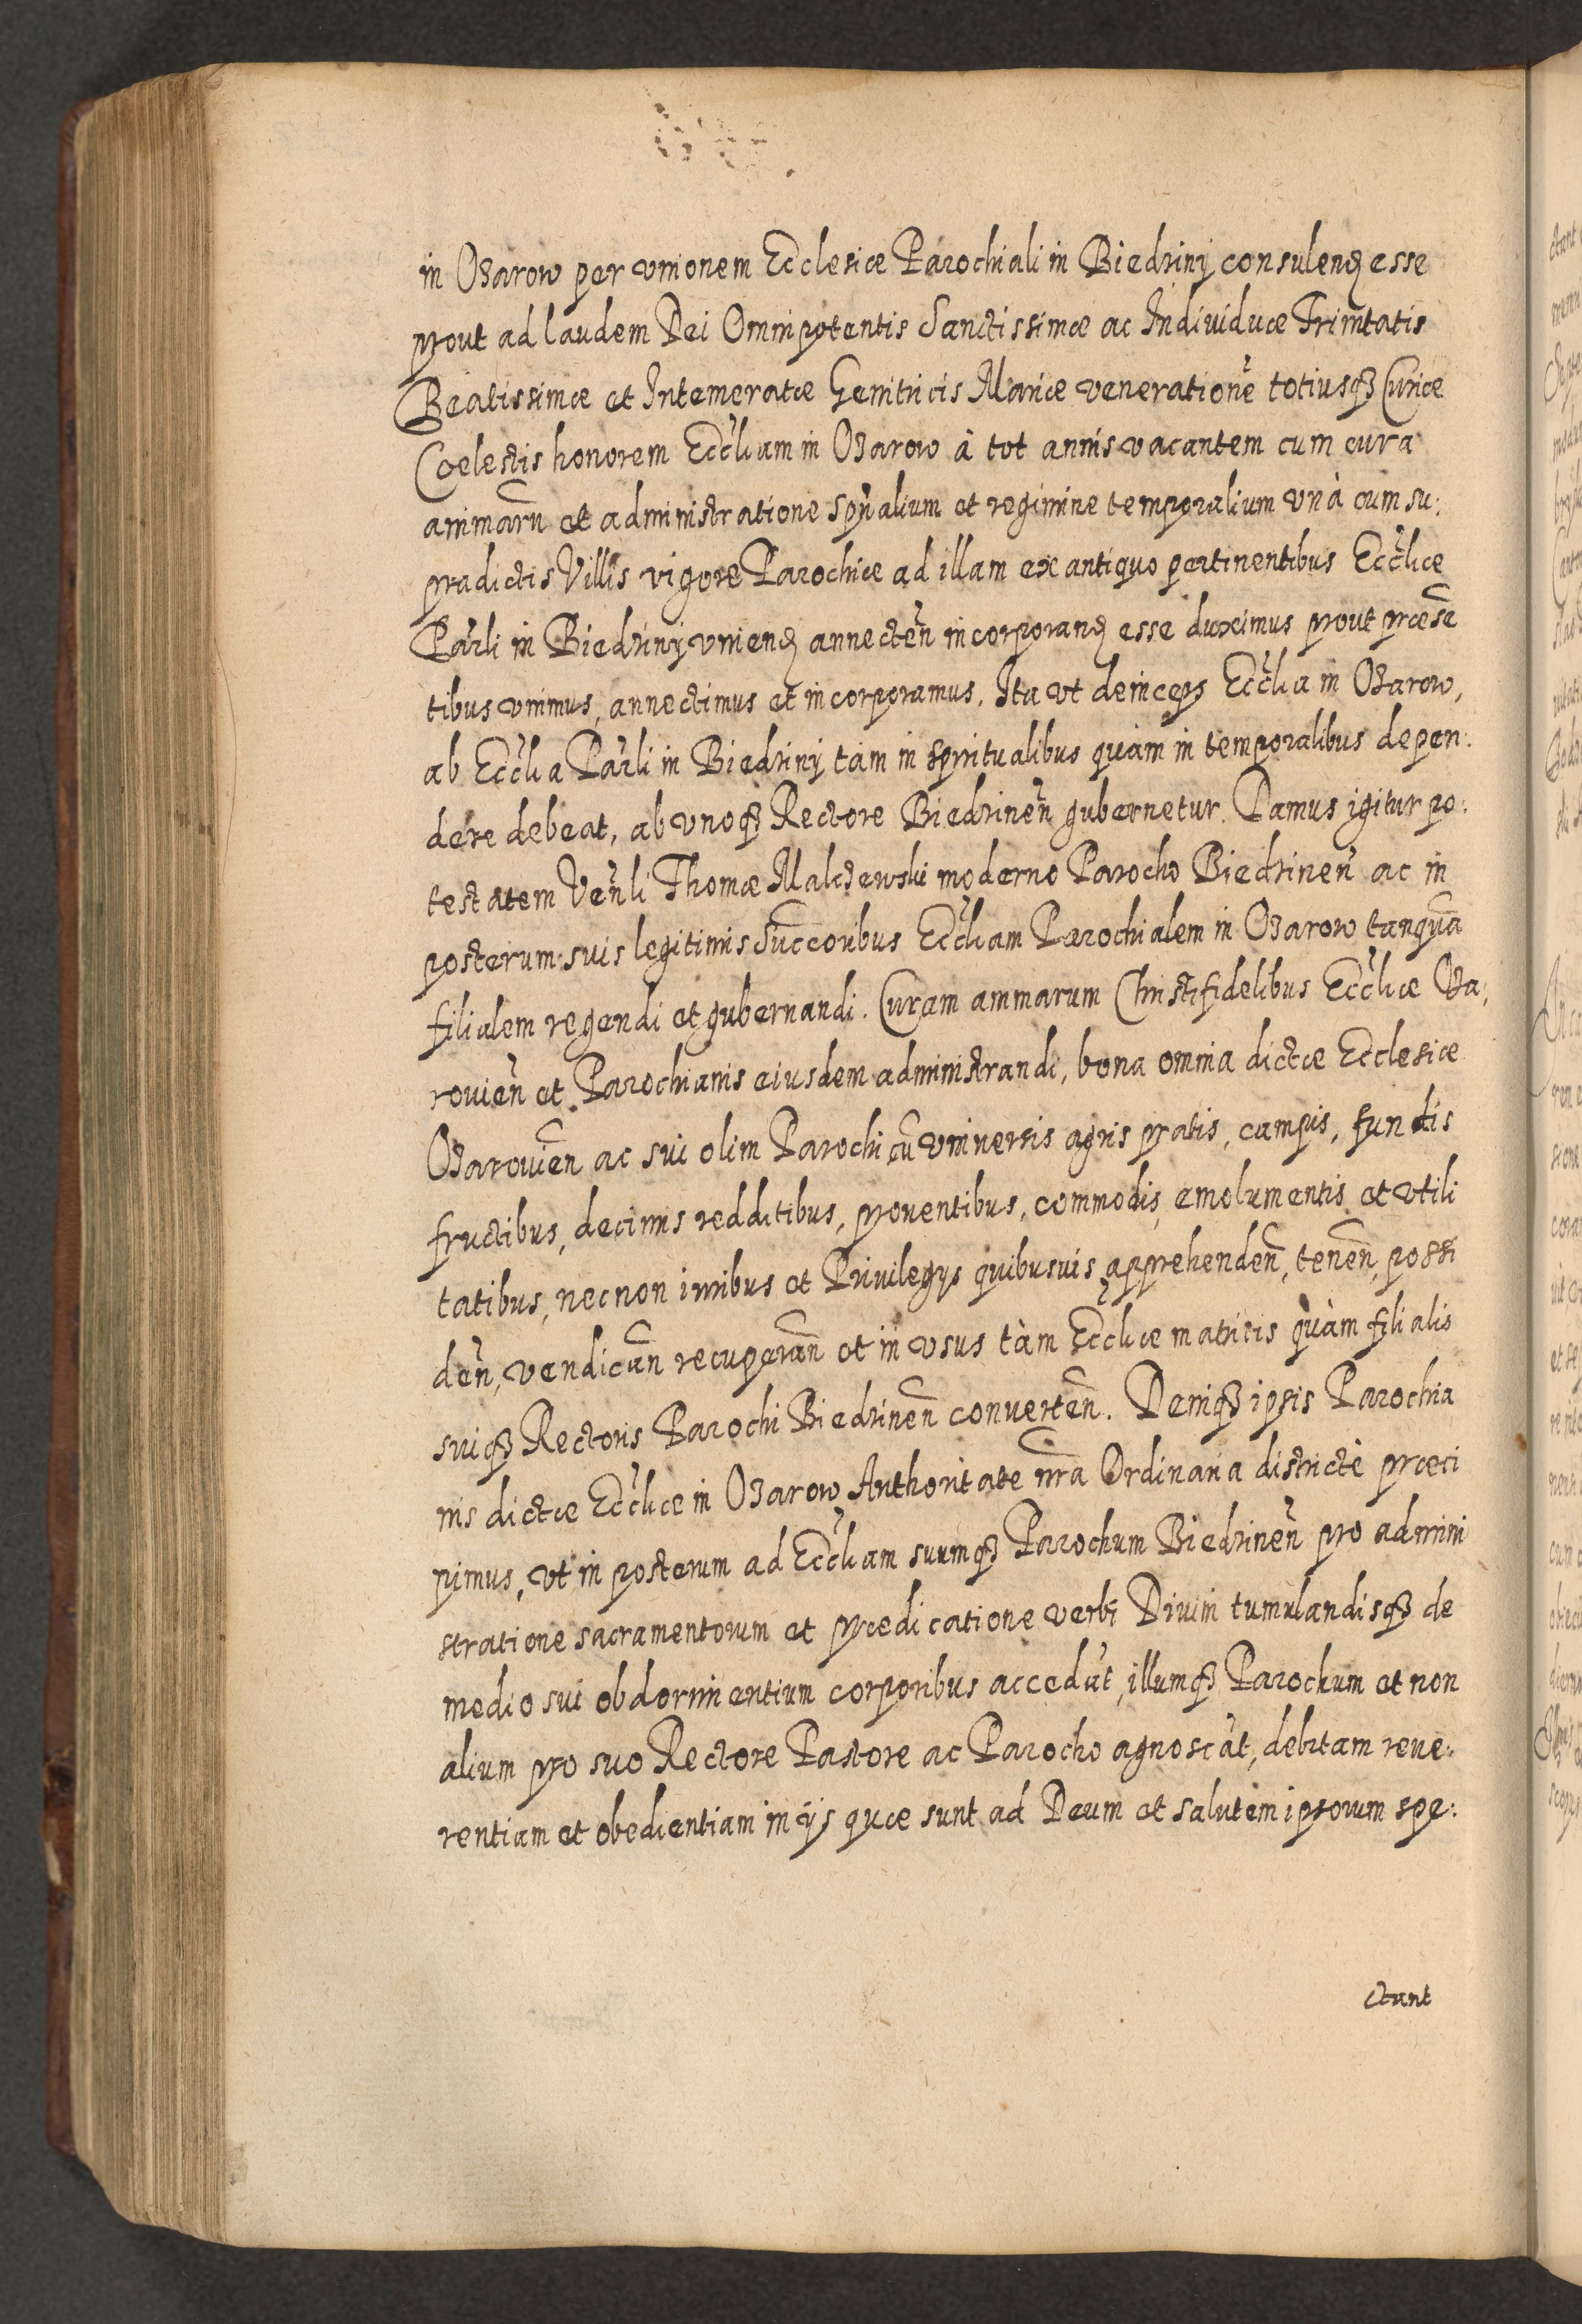 in Ożarow per vnionem Ecclesiæ Parochiali in Biedziny consulend esse
prout ad laudem Dei Omnipotentis Sanctissimæ ac Indiuiduæ Trinitatis
Beatissimæ et Intemeratæ Genitricis Mariæ veneratione̅ totiusqȝ Curiæ
Coelestis honorem Eccl̃iam in Ożarow â tot annis vacantem cum cura
animaru̅ et administratione sp̅n̅alium et regimine temporalium vnà cum su:
pradictis Villis vigore Parochiæ ad illam ex antiquo pertinentibus Eccl̃iæ
Par̅li in Biedziny vniend annecten̅ incorporand esse duximus prout præse̅
tibus vnimus, annectimus et incorporamus. Ita vt deinceps Eccl̃ia in Ożarow,
ab Eccl̃ia Par̅li in Biedziny tàm in spiritualibus quàm in temporalibus depen:
dere debeat, ab vnoqȝ Rectore Biedzinen̅ gubernetur. Damus igitur po:
testatem Ven̅li Thomæ Malczewski moderno Parocho Biedzinen̅ ac in
posterum suis legitimis Succ̅oribus Eccl̃iam Parochialem in Ożarow tanqua̅
filialem regendi et gubernandi. Curam animarum Christifidelibus Eccl̃iæ Oża:
rouien̅ et Parochianis eiusdem administrandi, bona omnia dictæ Ecclesiæ
Ożarouien̅ ac sui olim Parochi cu̅ vniuersis agris pratis, campis, fundis
fructibus, decimis redditibus, prouentibus, commodis, emolumentis et vtili
tatibus, necnon iuribus et Priuilegys quibusuis apprehenden̅, tenen̅, possi
den̅, vendican̅ recuperan̅ et in vsus tàm Eccl̃iæ matricis quàm filialis
suiqȝ Rectoris Parochi Biedzinen̅ conuerten̅. Deniqȝ ipsis Parochia
nis dictæ Eccl̃iæ in Ożarow Authoritate n̅ra Ordinaria districtè præci
pimus, vt in posterum ad Eccl̃iam suumqȝ Parochum Biedzinen̅ pro admini
stratione sacramentorum et prædicatione verbi Diuini tumulandisqȝ de
medio sui obdormientium corporibus accedāt, illumqȝ Parochum et non
alium pro suo Rectore Pastore ac Parocho agnoscāt, debitam reue:
rentiam et obedientiam in ijs quæ sunt ad Deum et salutem ipsorum spe:
ctant